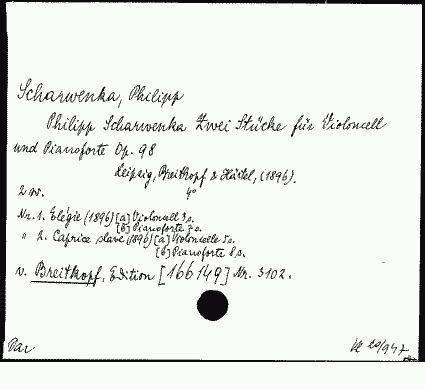 Scharwenka, Philipp
Philipp Scharwenka Zwei Stücke für Violoncell
und Pianoforte Op. 98
Leipzig, Breitkopf & Härtel, (1896).
2 nr. 4°
Nr. 1. Elégie (1896) [a] Violoncell 3 s.
[b] Pianoforte 7 s.
" 2. Caprice slave (1896) [a] Violoncelle 5 s.
[b] Pianoforte 8 s.
v. Breitkopf, Edition [166149] Nr. 3102.
Dar. 20/947